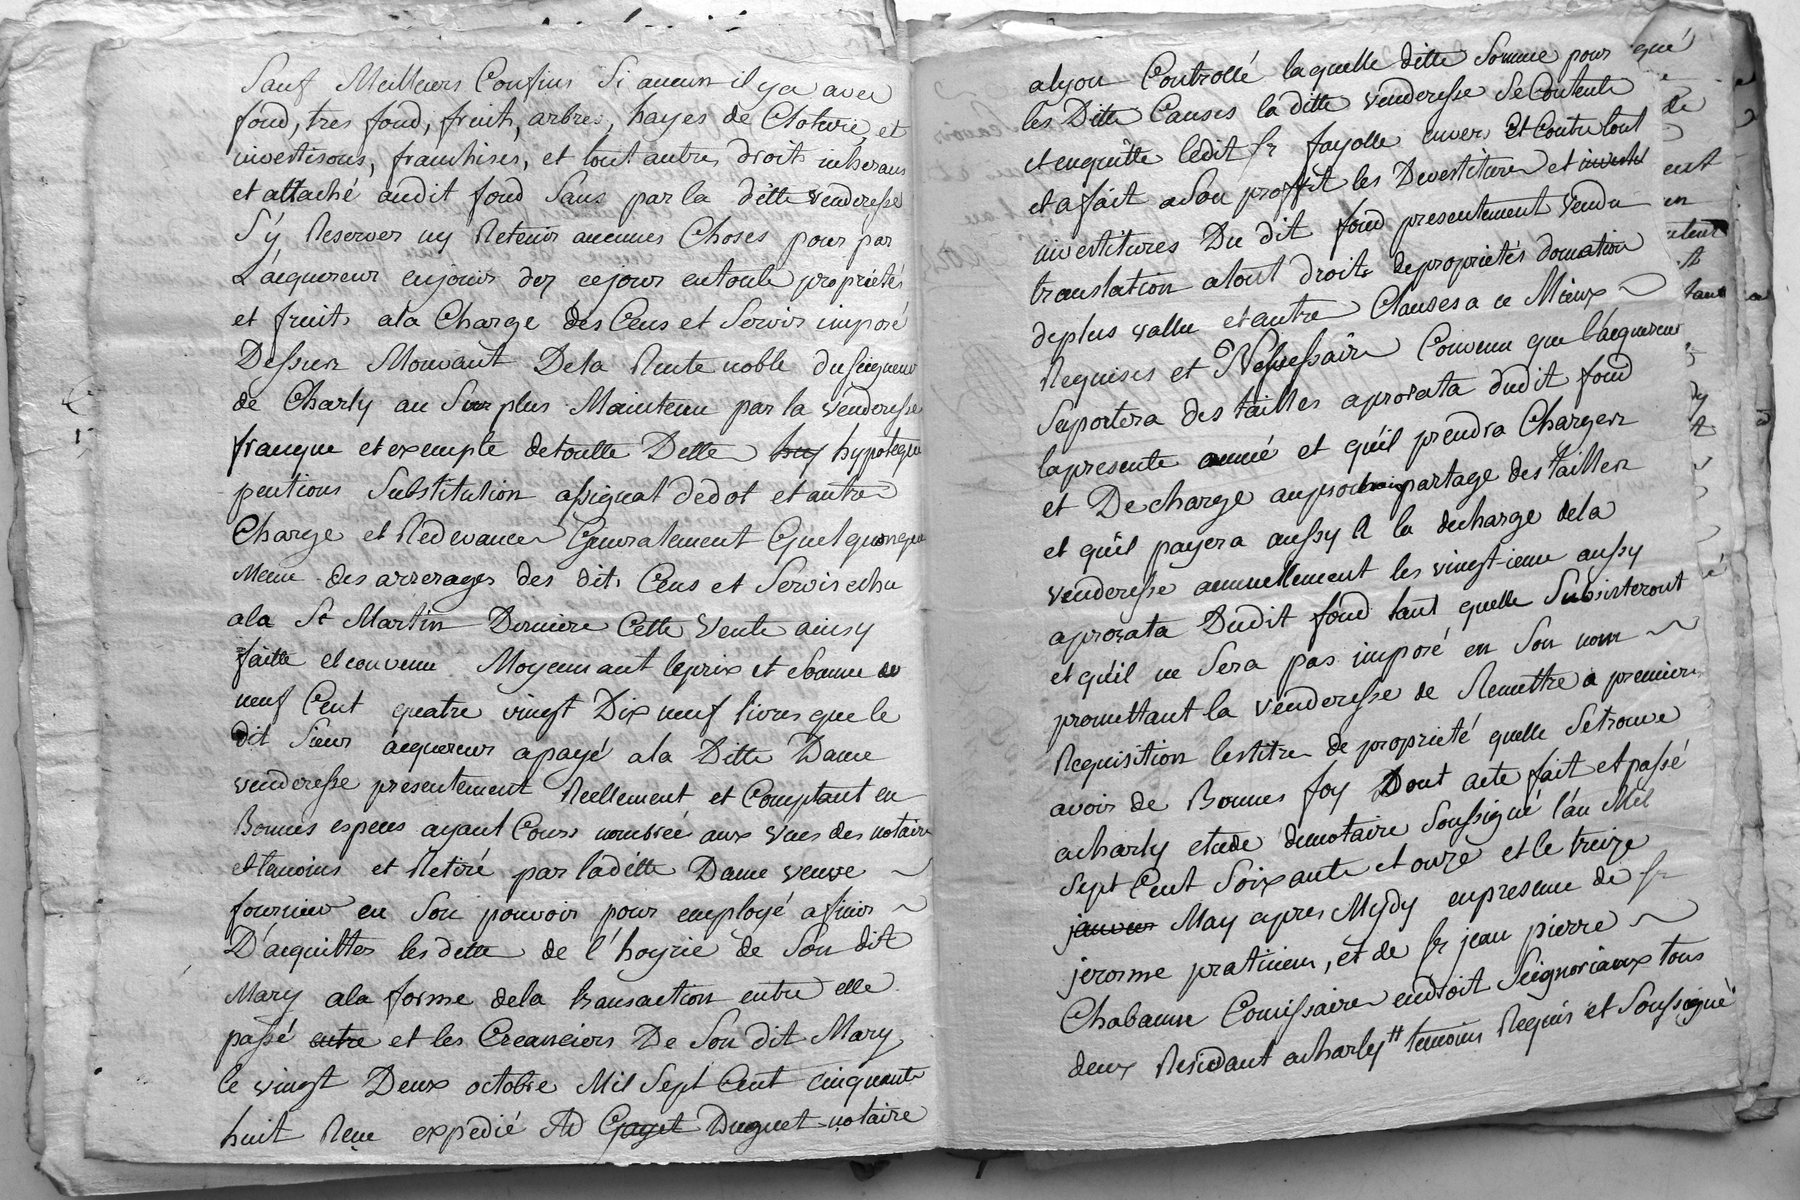 Sauf Meilleurs Confins Si aucun il y a avec
fond, tres fond, fruits, arbres, hayes de Cloture et
investisons, franchises, et tout autres droits inherans
et attaché audit fond Sans par la ditte venderesse
S'y Reserver ny Retenir aucunes Choses pour par
L'acquereur enjouir des cejour entoute proprietés
et fruits ala Charge des Cens et Servis imposé
Dessus Mouvant Dela Rente noble du Seigneur
de Charly au Surplus Maintenu par la venderesse
franque et exempte detoutte Dette hypoteque
pentions Substitution assignat dedot et autre
Charge et Redevances Generalement Quelquonque
Meme des arrerages des dits Cens et Servis echu
ala St Martin Derniere Cette Vente ainsy
faitte et convenue Moyennant leprix et Somme de
neuf Cent quatre vingt Dix neuf livres que le
dit Sieur acquereur apayé ala Ditte Dame
venderesse presentement Reellement et Comptant en
Bonnes especes ayant Cours nombrée aux vues des notaire
et temoins et Retiré par laditte Dame veuve
fournier en Son pouvoir pour employé afinir
D'acquitter les dette de l'hoyrie de Son dit
Mary ala forme dela transaction entre elle
passé entre et les Creanciers De Son dit Mary
le vingt Deux octobre Mil Sept Cent cinquante
huit Reçue expedié Duguet notaire
alyon Controllé laquelle ditte Somme pour
les Ditte Causes laditte venderesse Se Contente
et enquitte ledit Sr fayolle envers Et Contre tout
et afait aSon proffit les Devestitures et investi
investitures Du dit fond presentement vendu
translation atout droits deproprietés donnation
deplus vallue et autre Clauses a ce Mieux
Requises et Nessessaire Convenu que l'acquereur
Suportera des tailles aprorata dudit fond
lapresente année et qu'il prendra Charger
et Decharge auprochain partage des tailles
et qu'il payera aussy A la decharge dela
venderesse annuellement les vingtieme aussy
aprorata Dudit fond tant quelle Subsisteront
et qu'il ne Sera pas imposé en Son nom
promettant la venderesse de Remettre a premiere
Requisition lestitre de proprieté quelle Setrouve
avoir de Bonnes foy Dont acte fait et passé
acharly etude denotaire Soussigné l'an Mil
Sept Cent Soixante et onze et le treize
janvier May apres Mydy enpresence de Sr
jerosme praticien, et de Sr jean pierre
Chabanne Comissaire endroit Seignoriaux tous
deux Residant acharly temoins Requis et Soussigné